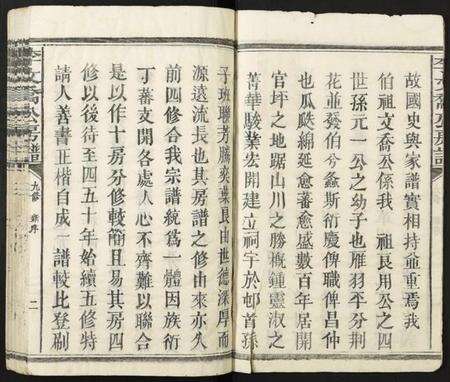 故國史與家譜實相持並重焉我
伯祖文喬公係我 祖長用公之四
世孫元一公之幼子也雁羽平分荆
花並發伯兮蠡斯衍慶俾職俾昌仲
也瓜瓞綿延愈蕃愈盛數百年居開
官坪之地踞山川之勝概鍾靈淑之
菁華駿業宏開建立祠宇於邨首孫
子班聯芳騰奕葉良由世德深厚而
源遠流長也其房譜之修由來亦久
前四修合我宗譜統爲一體因族衍
丁蕃文開各處人心不齊難以聯合
是以作十房分修較簡且易其房四
修以後待至四五十年始續五修特
請人善書正楷自成一譜較比登刷
李文喬公房譜
九修 族序
二